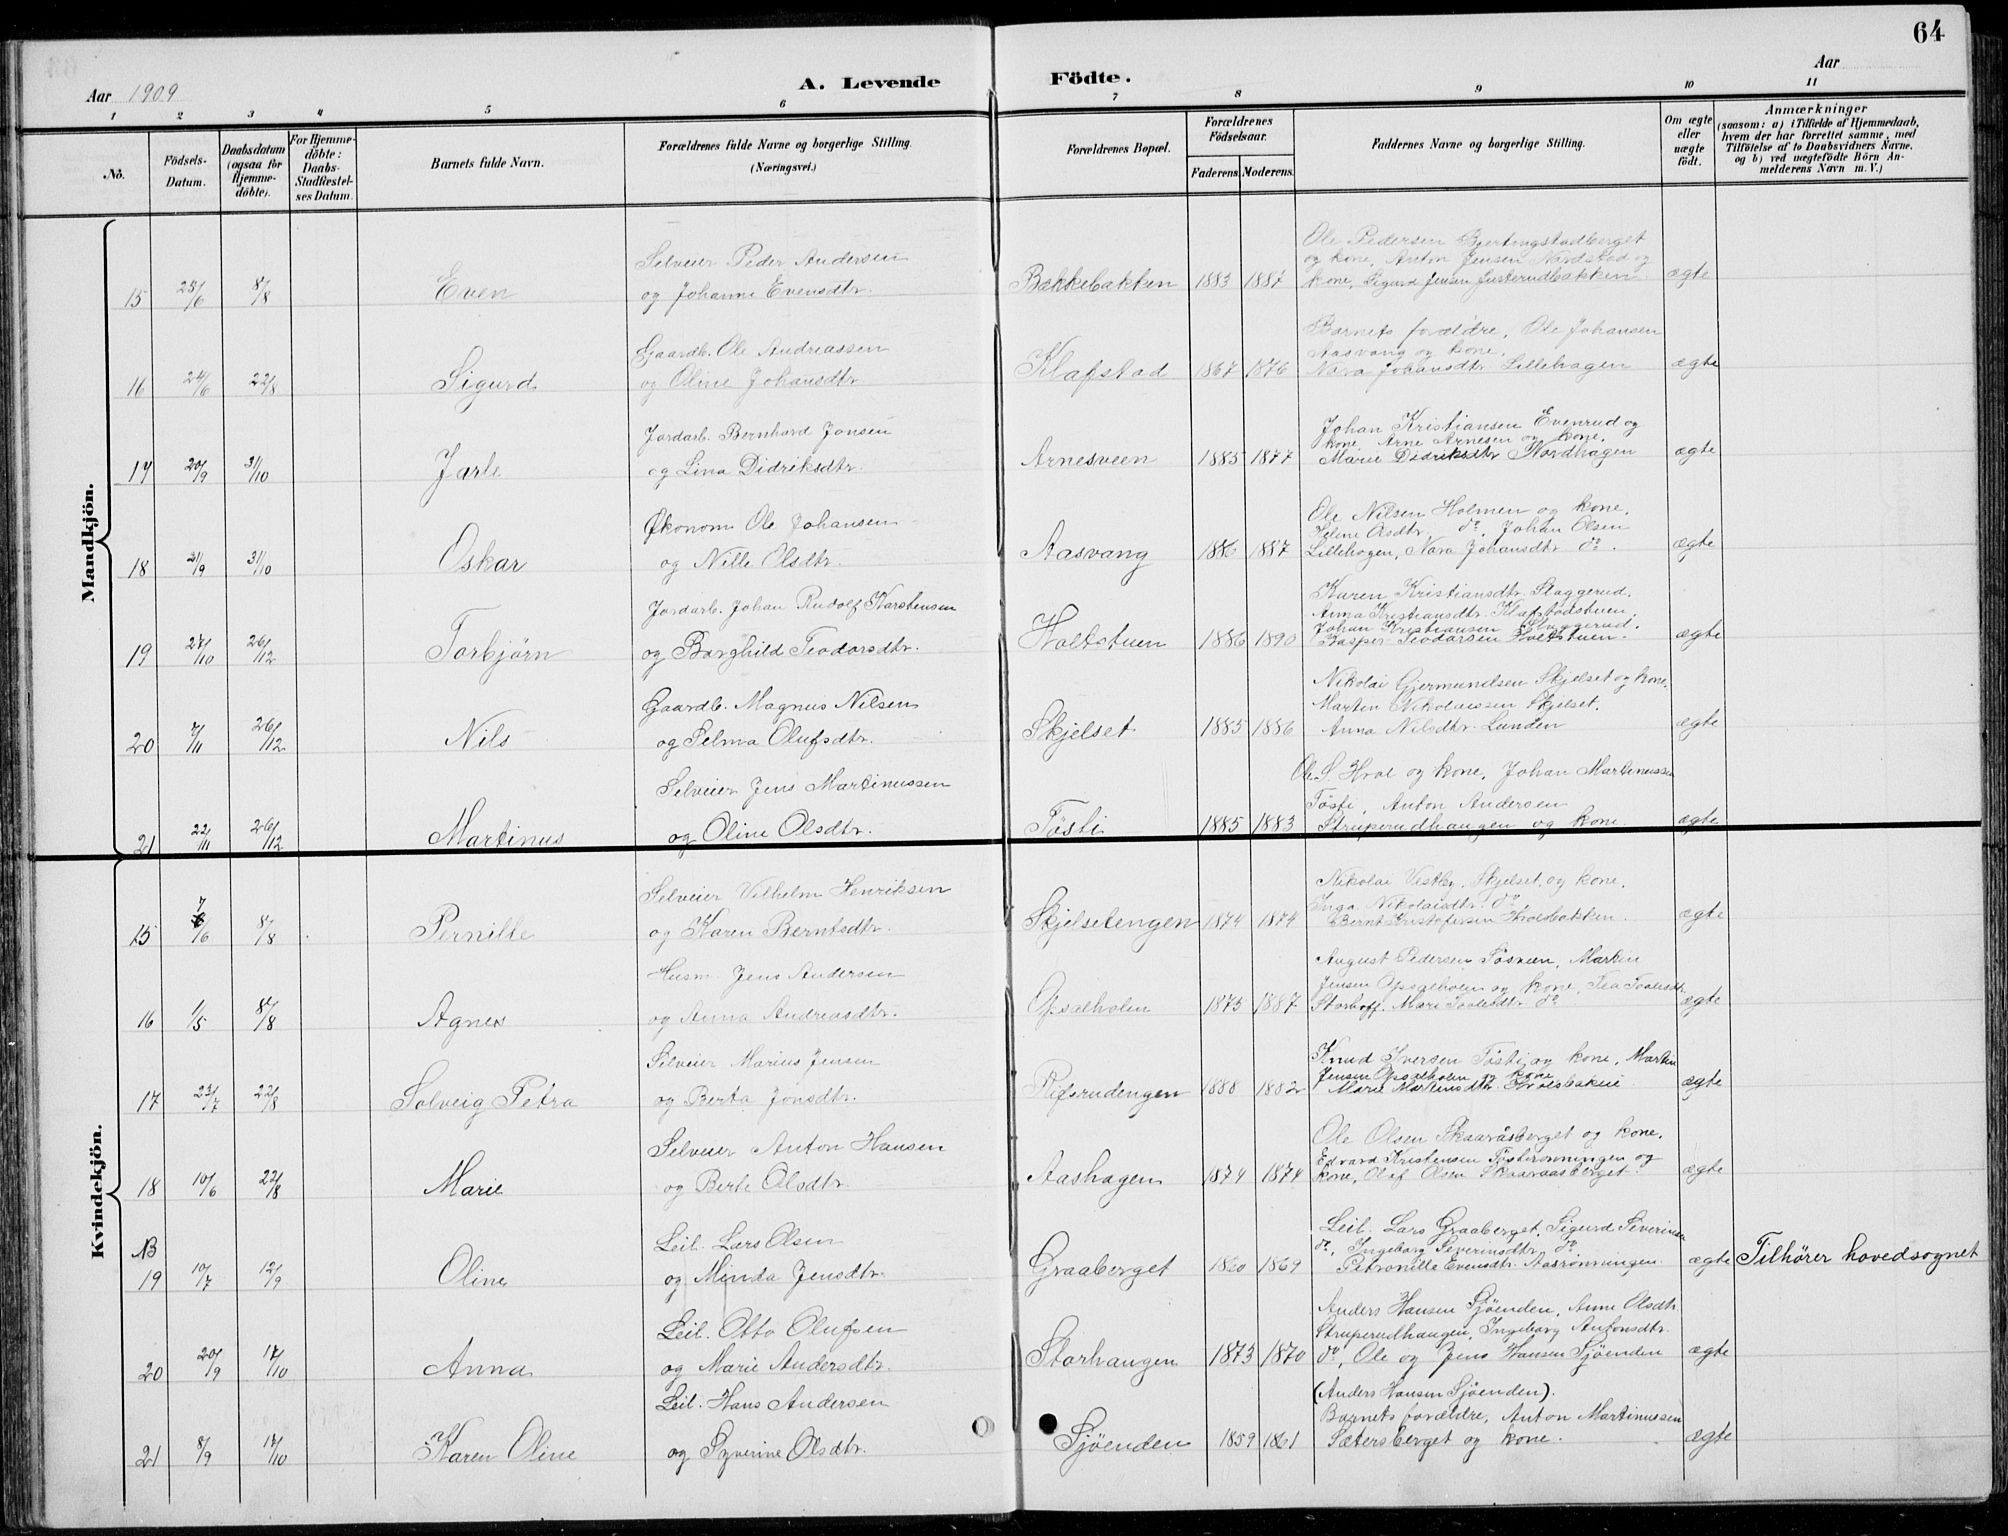 64
Aar 1909
A. Levende Födte.
Aar
1 2 3 4 5 6 7 8 9 10 11
No.
Födsels-Datum.
Daabsdatum (ogsaa for Hjemme-döbte).
For Hjemme-döbte: Daabs-Stadfæstel-ses Datum.
Barnets fulde Navn.
Forældrenes fulde Navne og borgerlige Stilling.
(Næringsvei.)
Forældrenes Bopæl.
Forældrenes Födselsaar.
Faderens. Moderens.
Faddernes Navne og borgerlige Stilling.
Om ægte eller uægte födt.
Anmærkninger
(saasom: a) i Tilfælde af Hjemmedaab, hvem der har forrettet samme, med Tilföielse af to Daabsvidners Navne, og b) ved uægtefödte Börn An-melderens Navn m. V.)
Mandkjön.
15 25/6 8/8 Even
Selveier Peder Andersen
og Johanne Evensdtr.
Bakkebakken 1883 1887
Ole Pedersen Bjertingstadberget
og kone, Anton Jensen Nordstad og
kone, Sigurd Jensen Justerudbakken
ægte
16 24/6 22/8 Sigurd
Gaardb. Ole Andreassen
og Oline Johansdtr
Klafstad 1867 1876
Barnets forældre, Ole Johansen
Aasvang og kone,
Nora Johansdtr Lillehagen
ægte
17 20/9 31/10 Jarle
Jordarb. Bernhard Jonsen
og Lina Didriksdtr.
Arnesveen 1885 1877
Johan Kristiansen Evenrud og
kone, Arne Arnesen og kone.
Marie Didriksdtr Nordhagen
ægte
18 21/9 31/10 Oskar
Økonom Ole Johansen
og Nille Olsdtr.
Aasvang 1886 1887
Ole Nilsen Holmen og kone,
Heline Olsdtr do, Johan Olsen
Lillehagen, Nora Johansdtr do.
ægte
19 27/10 26/12 Torbjørn
Jordarb. Johan Rudolf Karstensen
og Borghild Teodorsdtr.
Holtstuen 1886 1890
Karen Kristiansdtr. Slaggerud.
Anna Kristiansdtr. Klafstadstuen.
Johan Kristiansen Slaggerud.
Kasper Teodorsen Holtstuen.
ægte
20 7/11 26/12 Nils
Gaardb. Magnus Nilsen
og Selma Olufsdtr.
Skjelset 1885 1886
Nikolai Gjermundsen Skjelset og kone,
Martin Nikolaissen Skjelset.
Anna Nilsdtr. Lunden
ægte
21 22/11 26/12 Martinus
Selveier Jens Martinussen
og Oline Olsdtr.
Tøsti 1885 1883
Ole S. Hval og kone, Johan Martinussen
Tøsti, Anton Andersen
Struperudhaugen og kone.
ægte
Kvindekjön.
15 7/6 8/8 Pernille
Selveier Vilhelm Henriksen
og Karen Berntsdtr.
Skjelsetengen 1874 1874
Nikolai Vestby, Skjelset, og kone,
Inga Nikolaisdtr. do
Bernt Kristofersen
ægte
16 1/5 8/8 Agnes
Husm. Jens Andersen
og Anna Andreasdtr.
Opsalholen 1873 1887
August Pedersen, Martin
Jensen Opsalholen og kone,
Storhoff. Mari do
ægte
17 23/7 22/8 Solveig Petra
Selveier Marius Jensen
og Berta Jonsdtr.
Refsrudengen 1888 1882
Knud Iversen Tøsti og kone, Martin
Jensen Opsalholen og kone
Marie Martinsdtr.
ægte
18 10/6 22/8 Marie
Selveier Anton Hansen
og Berte Olsdtr
Aashagen 1874 1874
Ole Olsen Skaaråsberget og kone.
Edvard Kristensen Tøstirønningen og
kone, Olaf Olsen Skaaraasberget.
ægte
NB
19 10/7 12/9 Oline
Leil. Lars Olsen
og Minda Jensdtr.
Graaberget 1860 1869
Leil. Lars Graaberget, Sigurd Severinsen
do, Ingeborg Severinsdtr. do
Petronille Evensdtr. Aasrønningen.
ægte Tilhører hovedsognet
20 20/9 17/10 Anna
Leil. Otto Olufsen
og Marie Andersdtr.
Storhaugen 1873 1870
Anders Hansen Sjøenden, Anne Olsdtr.
Struperudhaugen, Ingeborg Antonsdtr.
do, Ole og Jens Hansen Sjøenden
ægte
21 8/9 17/10 Karen Oline
Leil. Hans Andersen
og Syverine Olsdtr.
Sjøenden 1859 1861
(Anders Hansen Sjøenden).
Barnets forældre, Anton Martinussen
Sætersberget og kone.
ægte